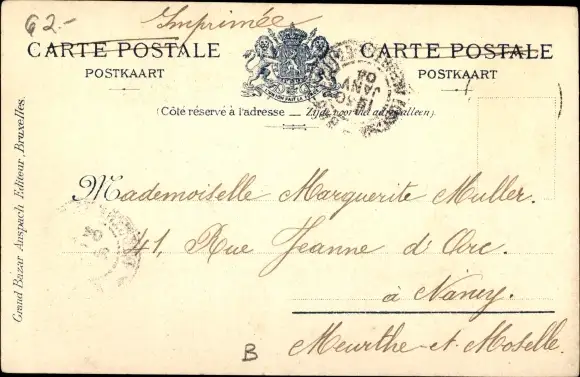 62.-
Imprimée
CARTE POSTALE CARTE POSTALE
POSTKAART POSTKAART
30
JANV
04
(Côté réservé à l'adresse — Zijde voor het adres alleen).
Grand Bazar Anspach Editeur, Bruxelles.
Mademoiselle Marguerite Muller.
41, Rue Jeanne d'Arc.
à Nancy.
Meurthe-et-Moselle.
B